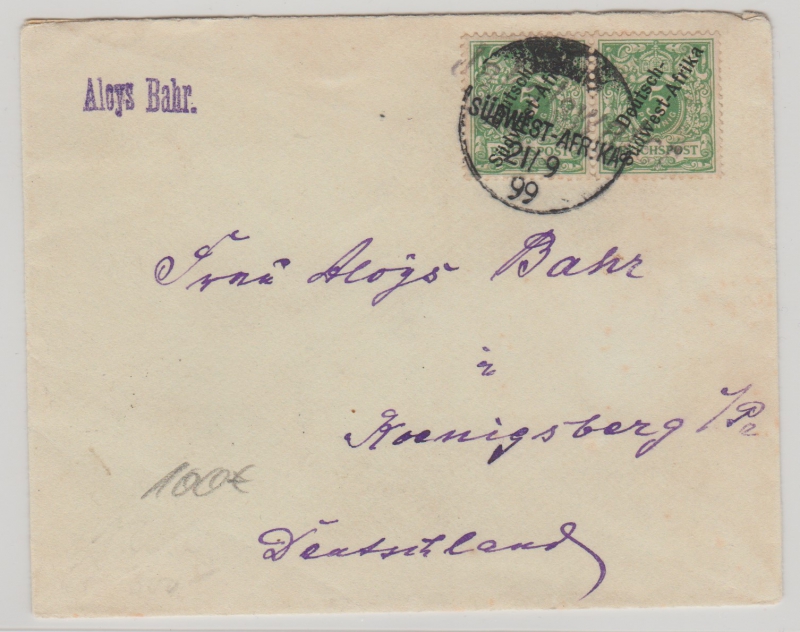 Aloys Bahr.
Deutsch-
Südwest-Afrika
REICHSPOST
Deutsch-
Südwest-Afrika
REICHSPOST
SÜDWEST-AFRIKA
21/9
99
Frau Aloys Bahr
in
Koenigsberg i/Pr
100€
Deutschland